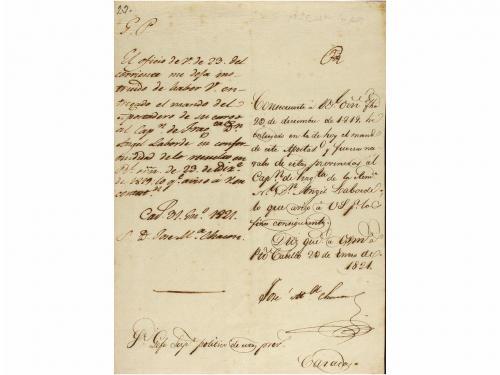 23.
E. P.
El oficio de V. de 23. del
corriente me deja ins-
truido de haber V. en-
tregado el mando del
Apostadero de su cargo
al Cap.n de Frag.ta D.n
Angel Laborde en confor-
midad de lo
R.l orn. de 23. de Diz.e
de 1819. lo q.e aviso à V. en
Car.s 31. En.o 1821.
S. D. Jose M.a Chacon.
Consecuente à R.l orn
20 de diciembre de 1819. he
entregado en la de hoy el mando
de este Apost.o y fuerza na-
vales de estas provincias al
Cap.n de frag.ta de la
A. D.n Angel Laborde
lo que aviso à V.S. p.a lo
fines consiguientes.
Dios gue. à
P.to Cabello 20 de Enero de
1821.
José M.a Chacon
S.or Gefe Sup.r politico de esta prov.
Caracas.